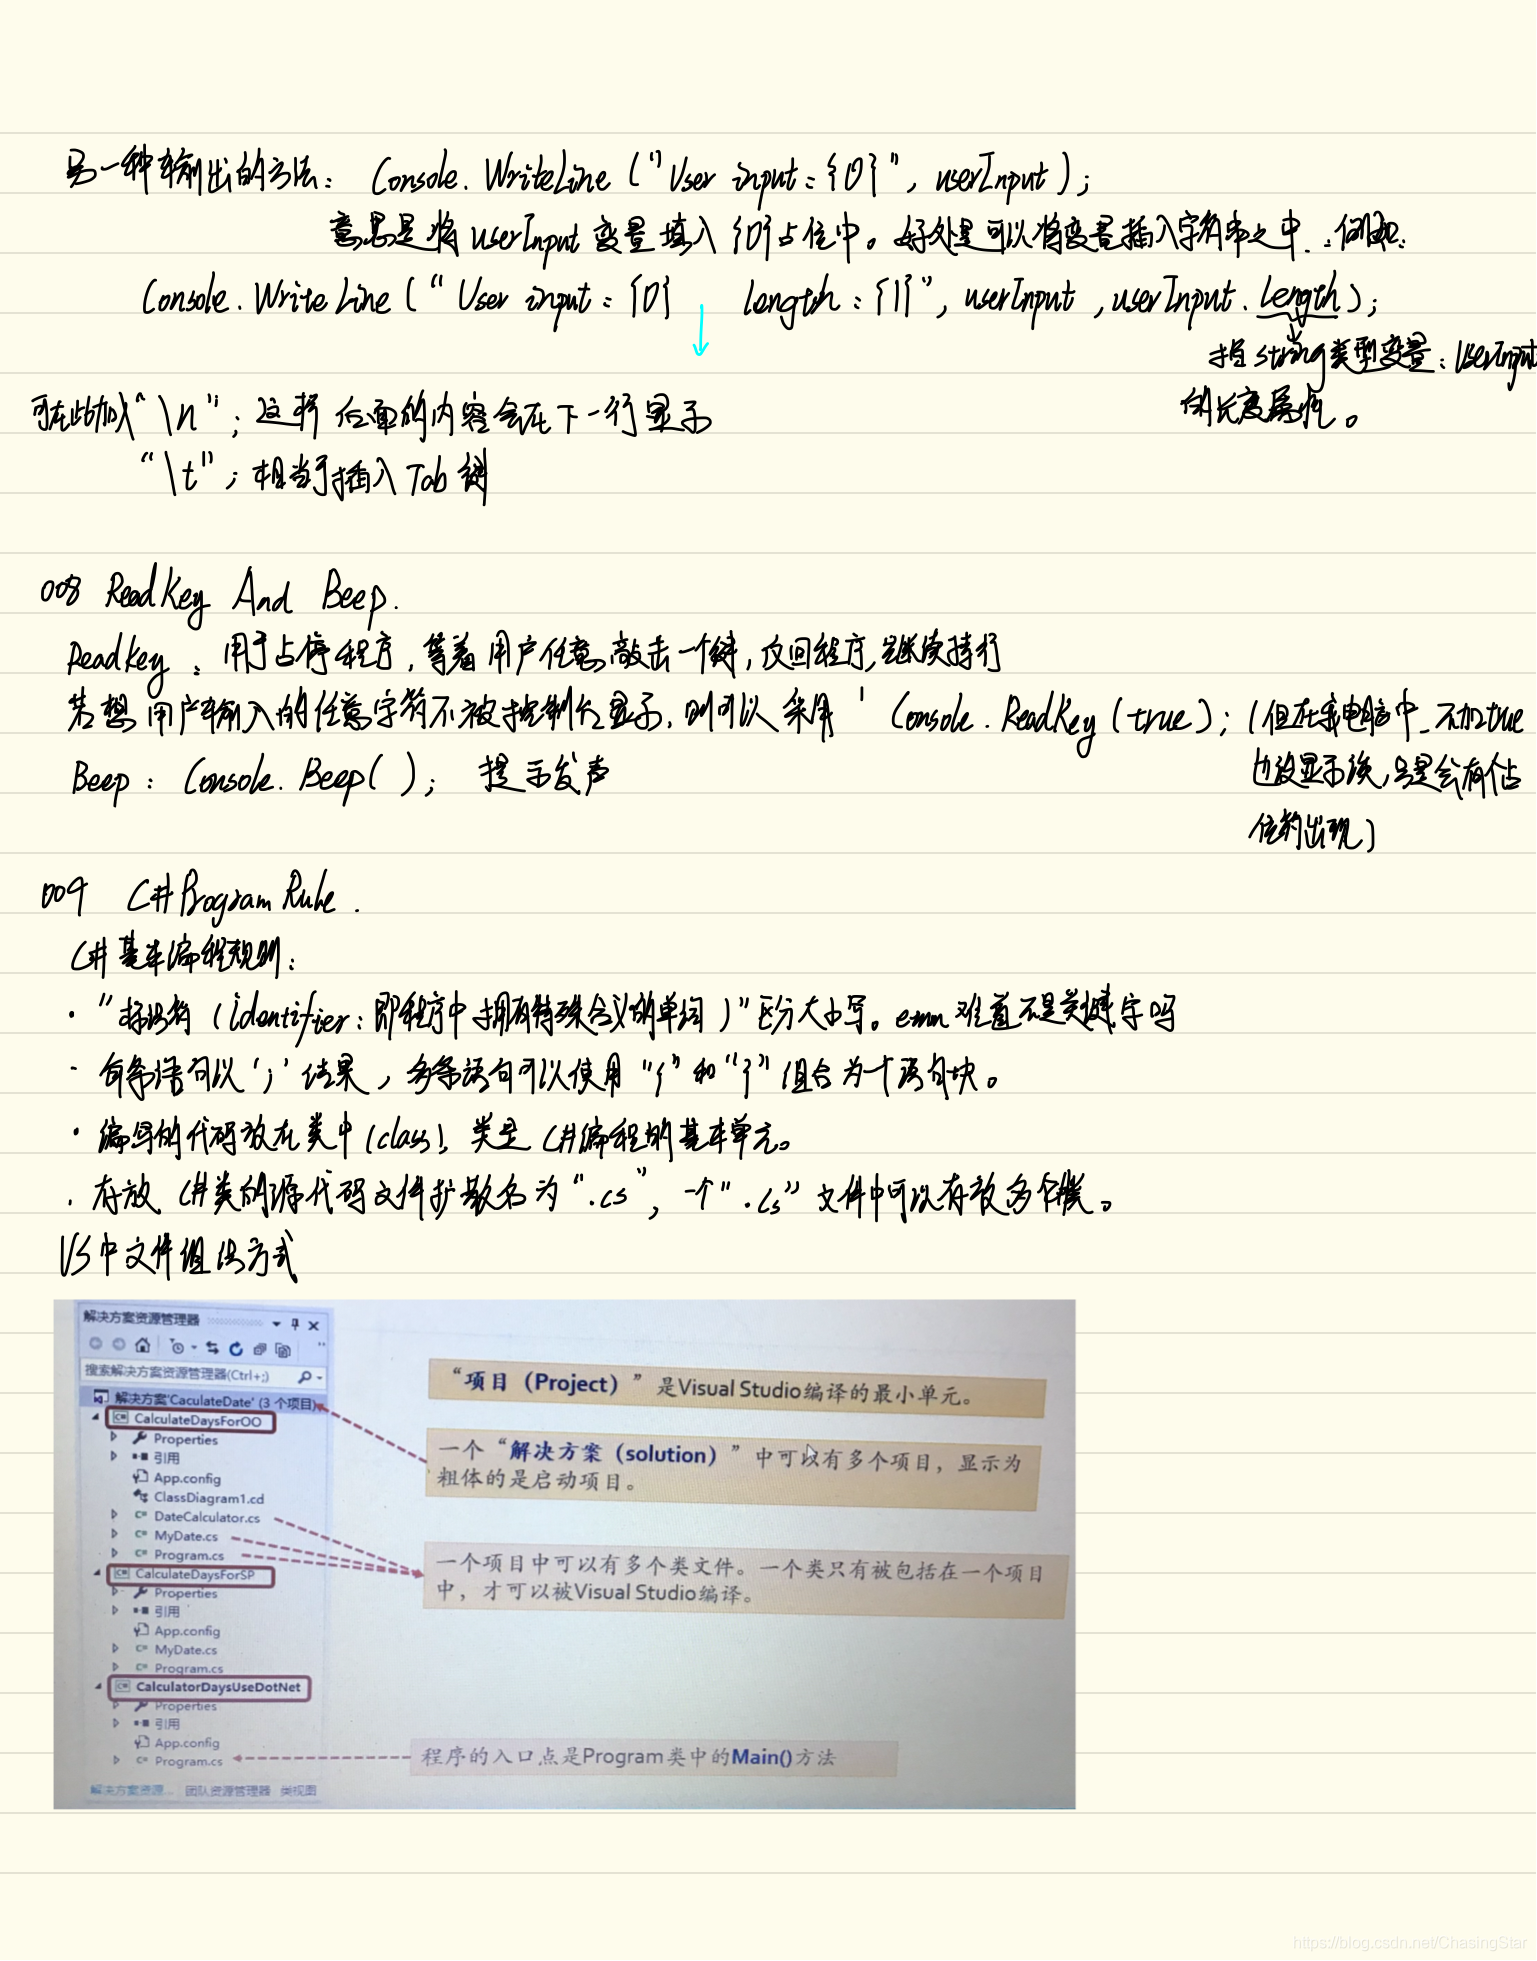 另一种输出的方法: Console.WriteLine ("User input: {0}", userInput);
意思是将userInput变量填入{0}占位中。好处是可以将变量插入字符串之中.例如:
Console.WriteLine ("User input: {0} length: {1}", userInput, userInput.Length);
指string类型变量: userInput
的长度属性。
可在此加入"\n"; 这样后面的内容会在下一行显示
"\t"; 相当于插入Tab键
008 ReadKey And Beep.
ReadKey: 用于占停程序, 等着用户任意敲击一个键, 反回程序, 继续持行
若想用户输入的任意字符不被控制台显示, 则可以采用 ' Console.ReadKey (true); (但在我电脑中, 不加true
也没显示诶, 只是会有个占
位符出现)
Beep: Console.Beep( ); 提示发声
009 C# Program Rule.
C#基本编程规则:
· "标识符 (identifier: 即程序中拥有特殊含义的单词)"区分大小写。emm 难道不是关键字吗
· 每条语句以';'结束, 多条语句可以使用"{"和"}"组合为一个语句块。
· 编写的代码放在类中(class), 类是C#编程的基本单元。
· 存放C#类的源代码文件扩散名为".cs", 一个".cs"文件中可以存放多个类。
VS中文件组织方式
解决方案资源管理器
搜索解决方案资源管理器(Ctrl+;)
解决方案'CaculateDate' (3 个项目)
CalculateDaysForOO
Properties
引用
App.config
ClassDiagram1.cd
DateCalculator.cs
MyDate.cs
Program.cs
CalculateDaysForSP
Properties
引用
App.config
MyDate.cs
Program.cs
CalculatorDaysUseDotNet
Properties
引用
App.config
Program.cs
解决方案资源... 团队资源管理器 类视图
“项目（Project）”是Visual Studio编译的最小单元。
一个“解决方案（solution）”中可以有多个项目，显示为
粗体的是启动项目。
一个项目中可以有多个类文件。一个类只有被包括在一个项目
中，才可以被Visual Studio编译。
程序的入口点是Program类中的Main()方法
https://blog.csdn.net/ChasingStar